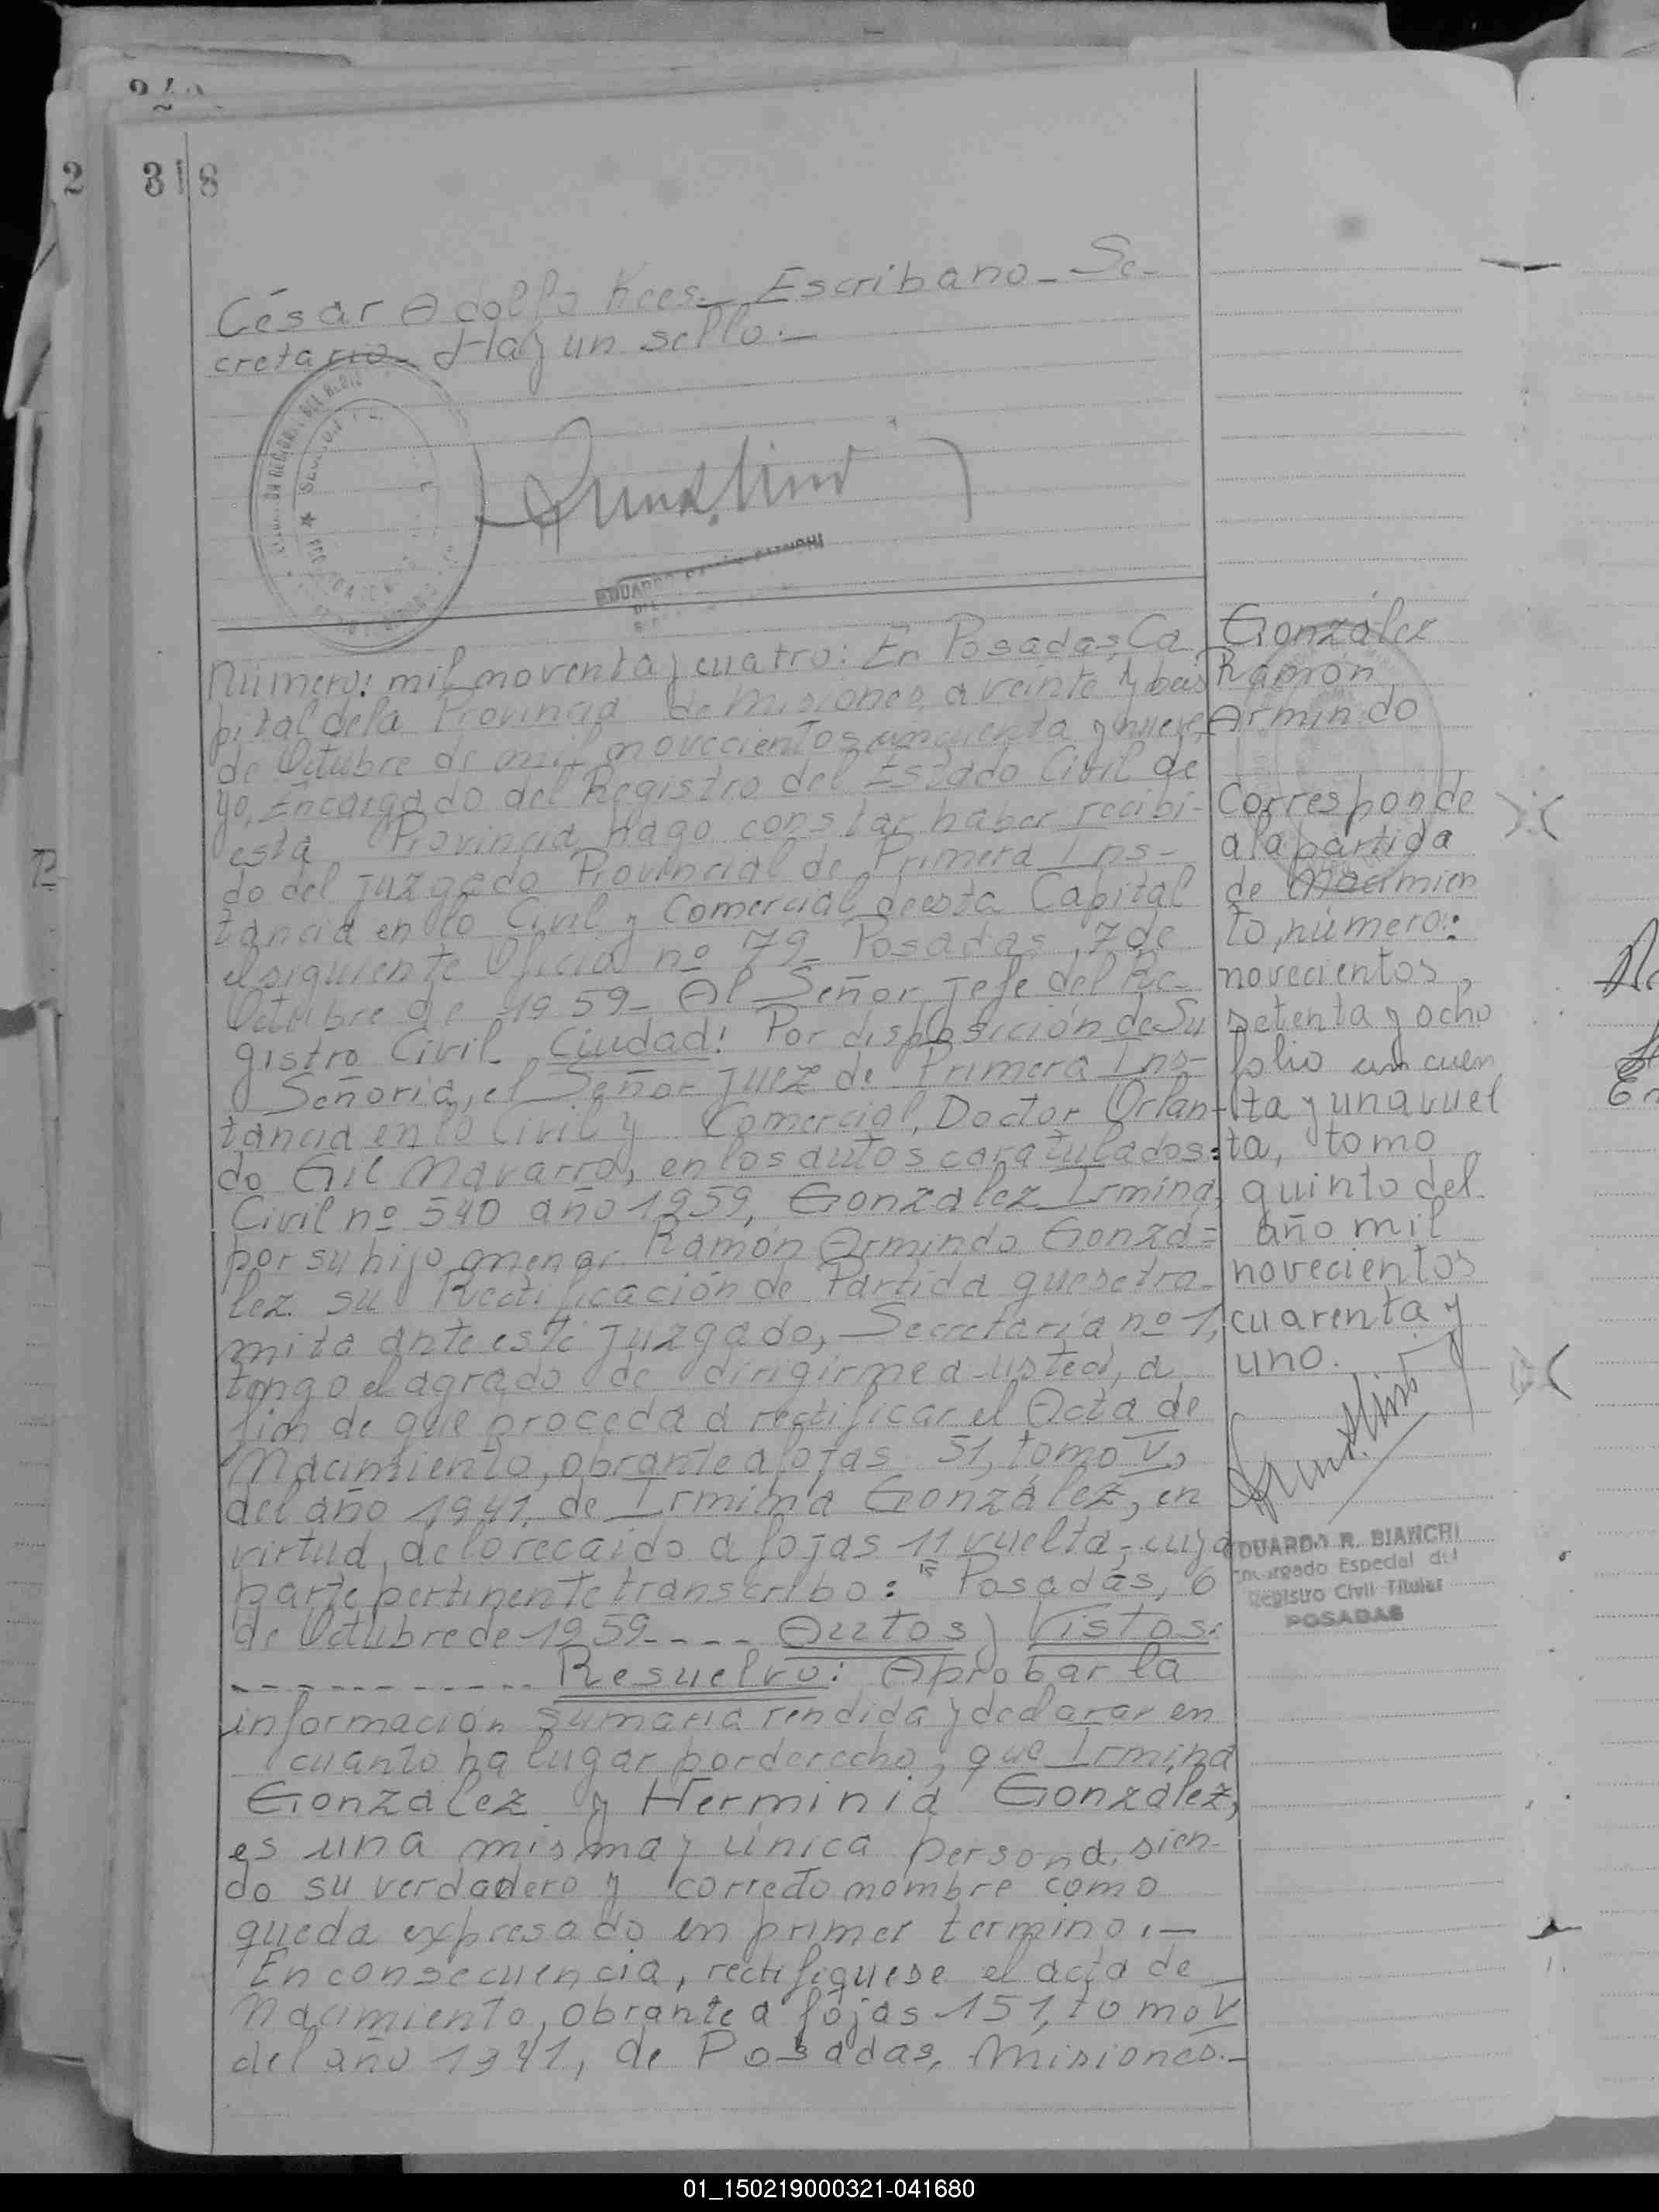 2 318
César Adolfo Kees.- Escribano - Se-
cretario - Hay un sello.-
EDUARDO RAMÓN BIANCHI
Número: mil noventa y cuatro: En Posadas, Ca
pital de la Provincia de Misiones, a veinte y seis
de Octubre de mil novecientos cincuenta y nueve,
yo, Encargado del Registro del Estado Civil de
esta Provincia, Hago constar haber recibi-
do del juzgado Provincial de Primera Ins-
tancia en lo Civil y Comercial de esta Capital
el siguiente Oficio nº 79- Posadas, 7 de
Octubre de 1959- Al Señor Jefe del Re-
gistro Civil- Ciudad: Por disposición de Su
Señoria, el Señor juez de Primera Ins-
tancia en lo Civil y Comercial, Doctor Orlan-
do Gil Navarro, en los autos caratulados:
Civil nº 540 año 1959, González Irmina,
por su hijo menor Ramón Armindo Gonzá=
lez su Rectificación de Partida que se tra-
mita ante este juzgado, Secretaría nº 1,
tengo el agrado de dirigirme a usted, a
fin de que proceda a rectificar el Acta de
Nacimiento, obrante a fojas 51, tomo V,
del año 1941, de Irmina González, en
virtud, de lo recaído a fojas 11 vuelta, cuya
parte pertinente transcribo: " Posadas, 6
de Octubre de 1959---- Autos y Vistos:
------------ Resuelvo: Aprobar la
información sumaria rendida y declarar en
cuanto ha lugar por derecho, que Irmina
González y Herminia González,
es una misma y única persona, sien-
do su verdadero y correcto nombre como
queda expresado en primer termino.-
En consecuencia, rectifíquese el acta de
Nacimiento, obrante a fojas 151, tomo V
del año 1941, de Posadas, Misiones.-
González
Ramón
Armindo
Corresponde
a la partida
de Nacimien
to, número:
novecientos,
setenta y ocho
folio cincuen
ta y una vuel
ta, tomo
quinto del
año mil
novecientos
cuarenta y
uno.
EDUARDO R. BIANCHI
Encargado Especial del
Registro Civil Titular
POSADAS
01_150219000321-041680